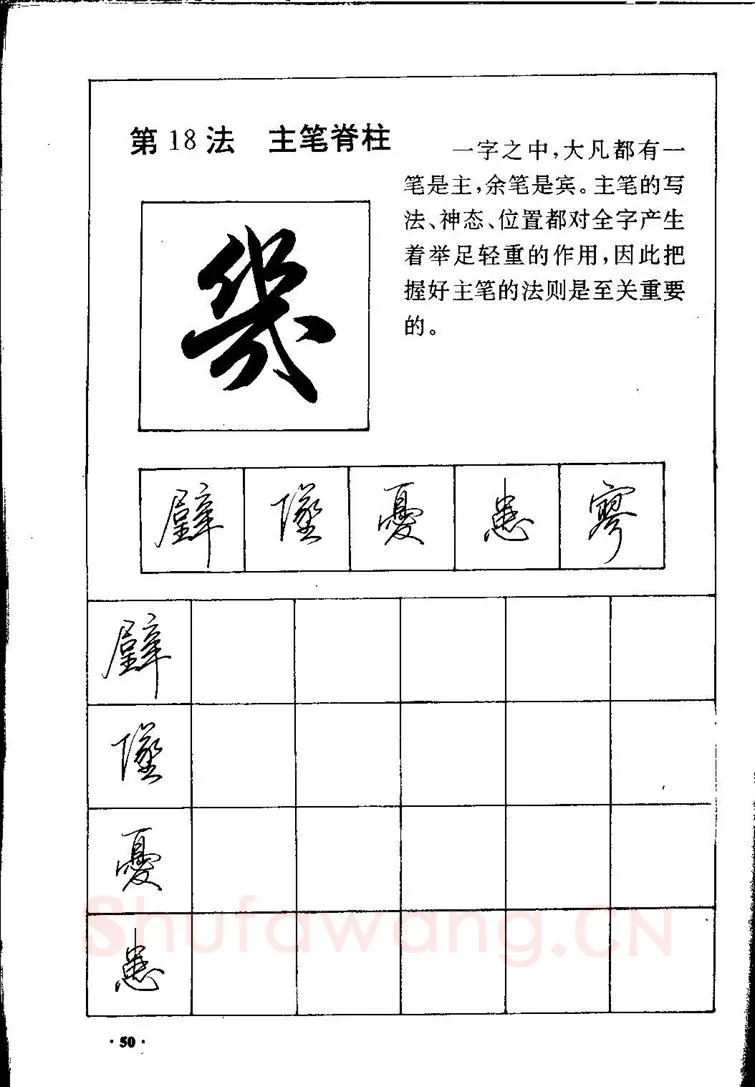 第18法 主笔脊柱
一字之中,大凡都有一
笔是主,余笔是宾。主笔的写
法、神态、位置都对全字产生
着举足轻重的作用,因此把
握好主笔的法则是至关重要
的。
幾
壁 墜 憂 患 寥
壁
墜
憂
患
Shufawang.CN
·50·